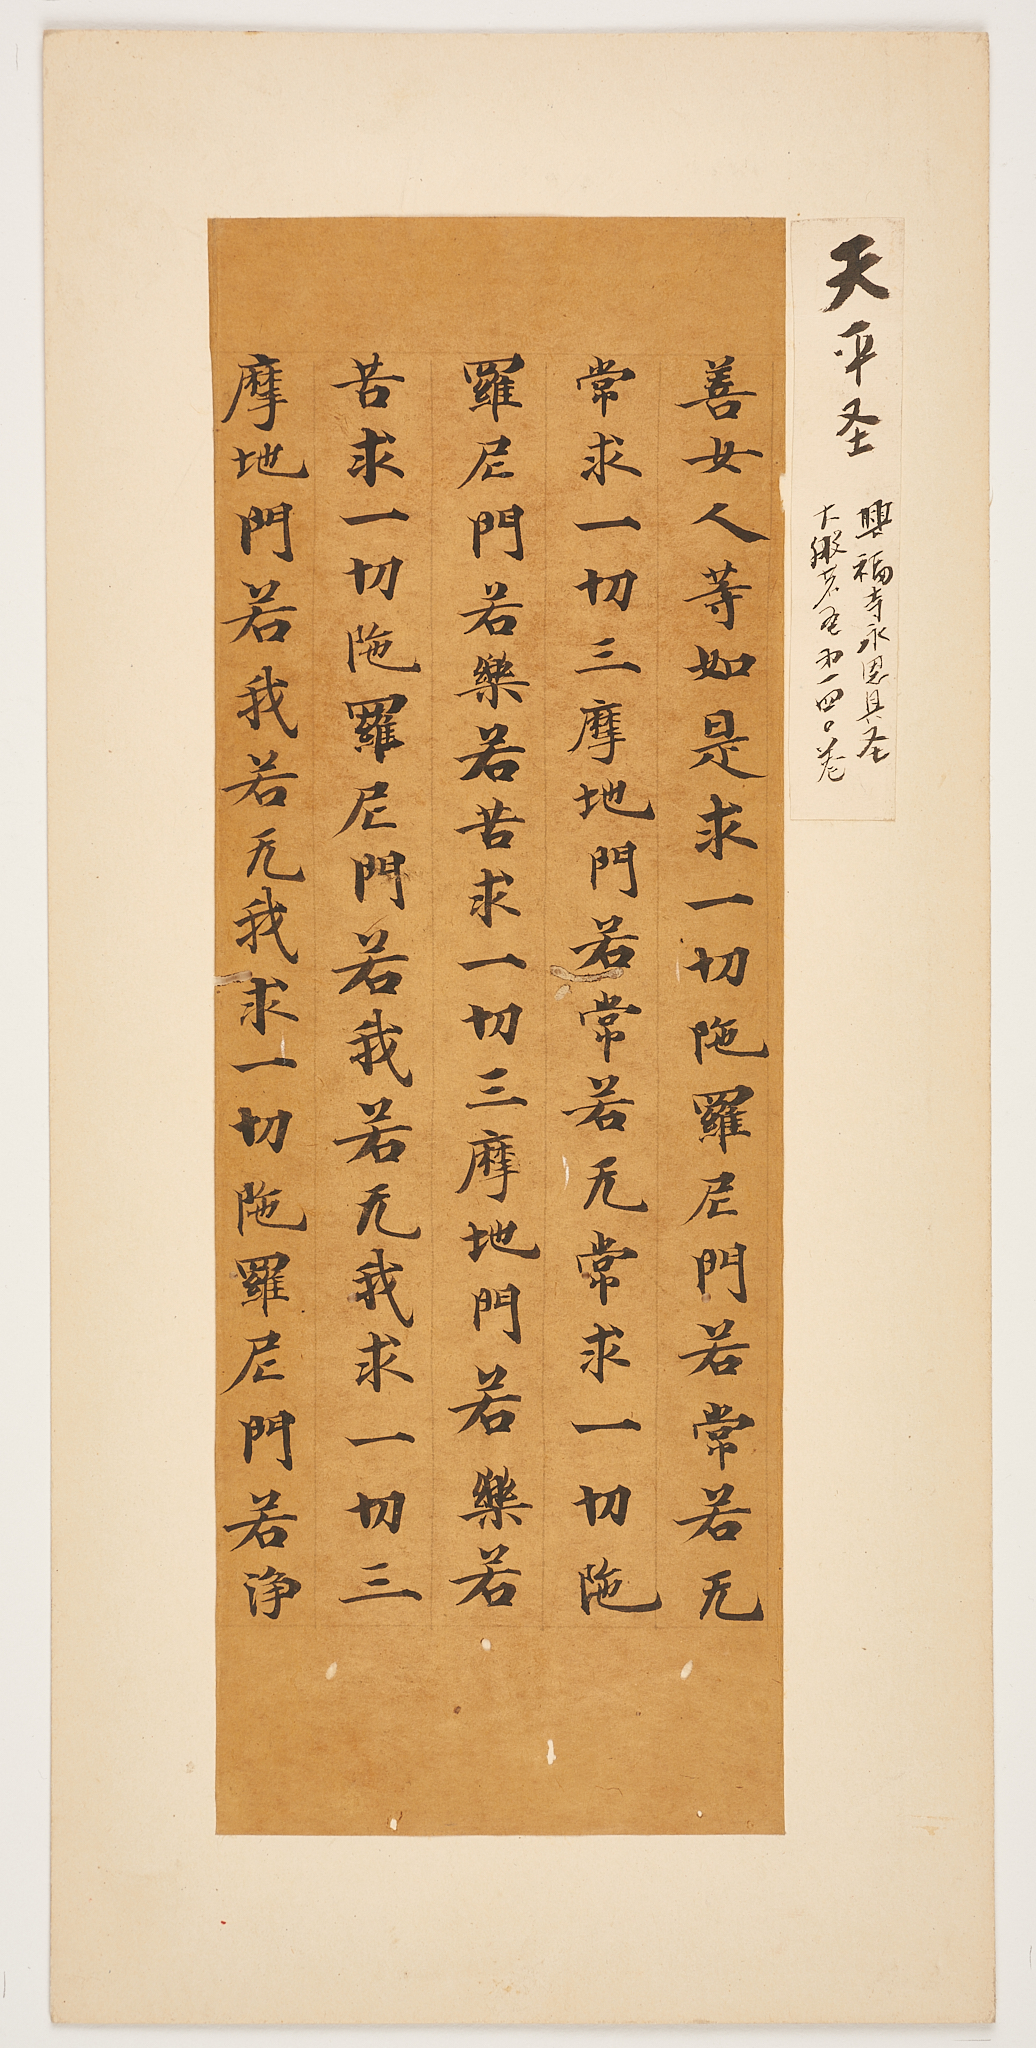 天平圣
興福寺永恩具圣
大般若𫝆第一四〇巻
善女人等如是求一切陁羅尼門若常若无
常求一切三摩地門若常若无常求一切陁
羅尼門若樂若苦求一切三摩地門若樂若
苦求一切陁羅尼門若我若无我求一切三
摩地門若我若无我求一切陁羅尼門若浄